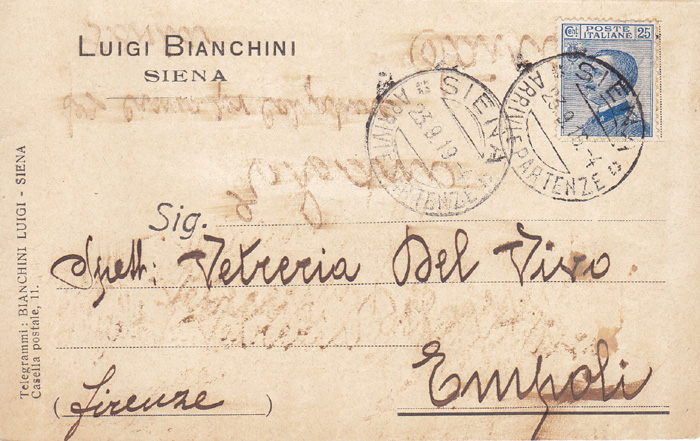 LUIGI BIANCHINI
SIENA
Cent. POSTE ITALIANE 25
SIENA
ARRIVI E PARTENZE
23.9.19
SIENA
ARRIVI E PARTENZE
23.9.19.-4
Sig.
Spett: Vetreria Del Vivo
Empoli
(Firenze)
Telegrammi: BIANCHINI LUIGI - SIENA
Casella postale, 11.